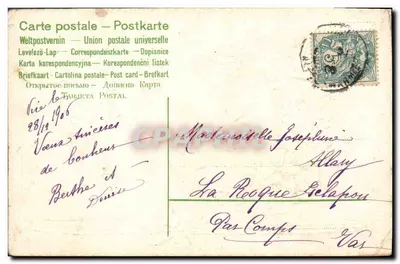 Carte postale - Postkarte
Weltpostverein - Union postale universelle
Levelező-Lap - Correspondenzkarte - Dopisnice
Karta korespondencyjna - Korespondenční lístek
Briefkaart - Cartolina postale - Post card - Brefkort
Открытое письмо - Дописна Карта
Tarjeta Postal
Nice le
28/12 1906
Vœux sincères
de bonheur
Berthe et
Denise
Mademoiselle Joséphine
Allary
La Roque Esclapon
Par Comps
Var